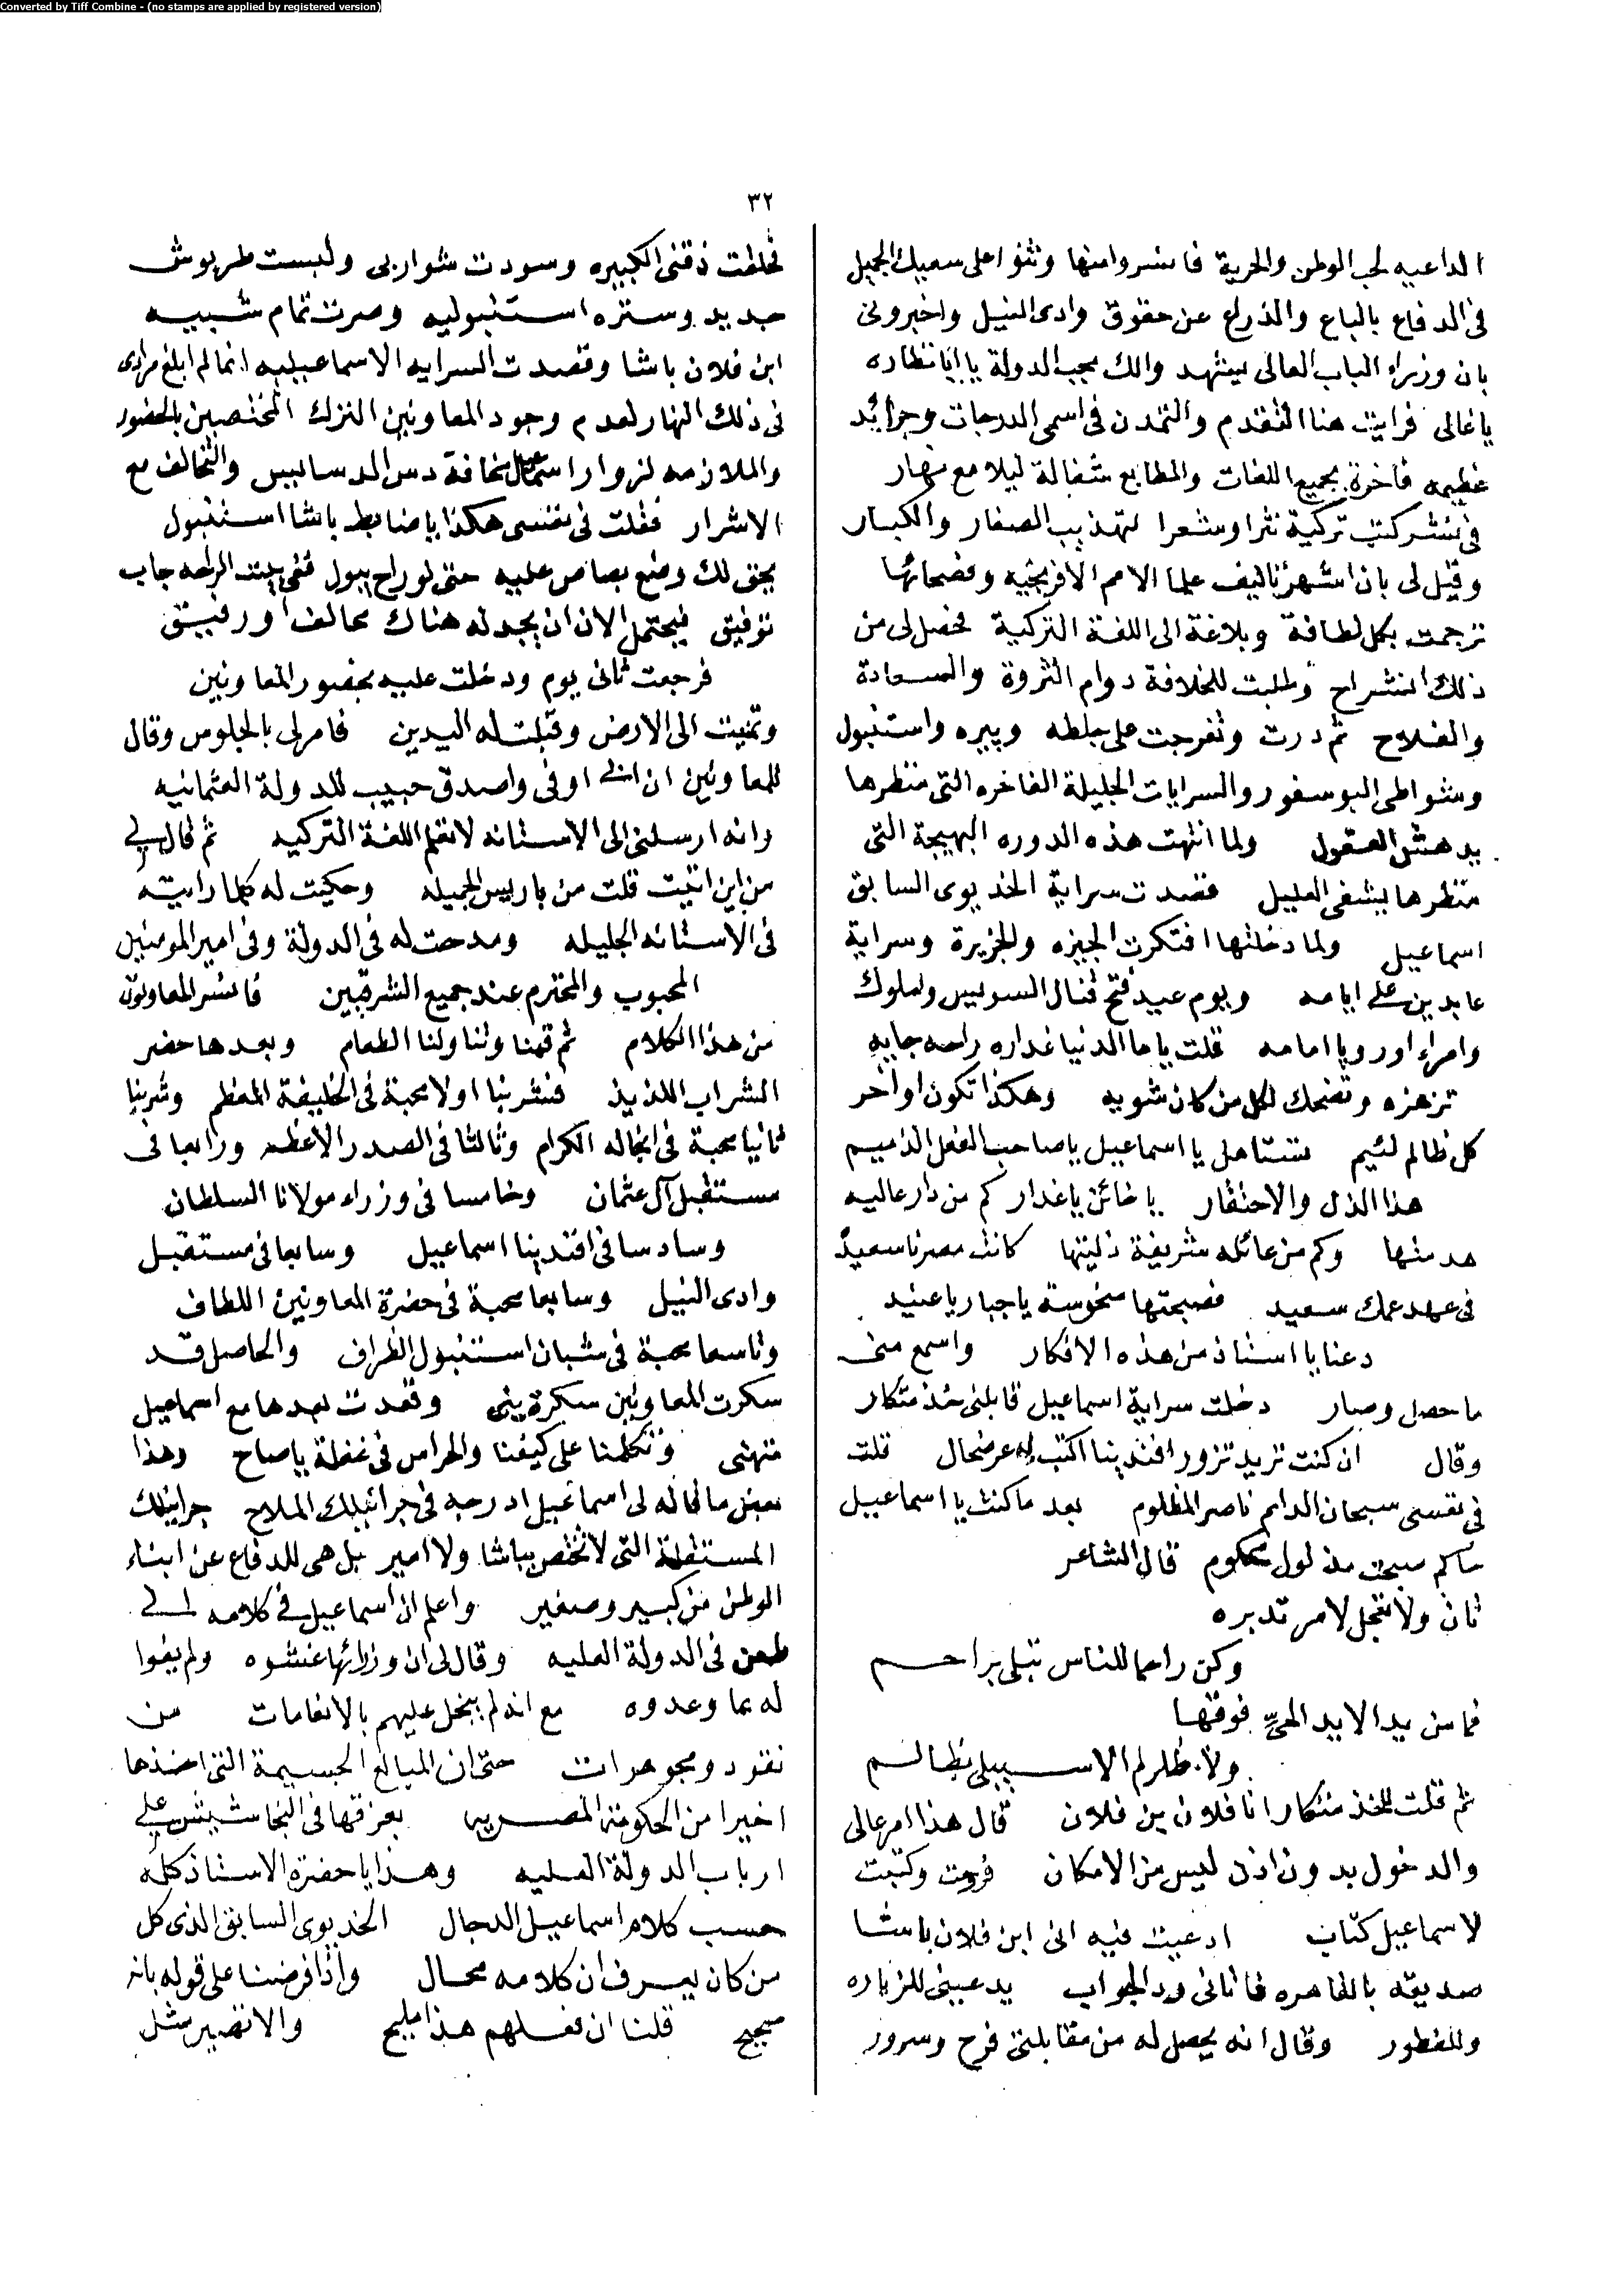 Converted by Tiff Combine - (no stamps are applied by registered version)
٣٢
الداعيه لحب الوطن والحرية فانسروا منها وثنوا على سعيك الجميل
فى الدفاع بالباع والذراع عن حقوق وادى النيل واخبرونى
بان وزراء الباب العالى بينتهد والك بجب الدولة يا ابا نظاره
يا غالى فرايت هنا التقدم والتمدن فى اسمى الدرجات وجرائد
عظيمه فاخرة بجميع اللغات والمطابع شغالة ليلا مع نهار
فى نشر كتب تركية نثرا وشعرا لتهذيب الصغار والكبار
وقيل لى بان اشهر تاليف علما الامم الافرنجيه وفصحائها
ترجمت بكل لطافة وبلاغة الى اللغة التركية فحصل لى من
ذلك انشراح وطلبت للخلافة دوام الثروة والسعادة
والفلاح ثم درت وتفرجت على غلطه وبيره واستنبول
وشواطى البوسفور والسرايات الجليلة الفاخره التى منظرها
يدهش العقول ولما انتهت هذه الدوره البهيجة التى
منظرها يشفى العليل قصدت سراية الخديوى السابق
اسماعيل ولما دخلتها افتكرت الجيزه والجزيرة وسراية
عابدين على ايامه ويوم عيد فتح قنال السويس والملوك
وامراء اوروپا امامه قلت ياما الدنيا غداره رايحه جايه
تزهزه وتضحك لكل من كان شويه وهكذا تكون اواخر
كل ظالم لئيم تستاهل يا اسماعيل يا صاحب الفعل الذميم
هذا الذل والاحتقار يا خائن يا غدار كم من دار عاليه
هدمتها وكم من عائله شريفة ذليتها كانت مصرنا سعيدة
فى عهد عمك سعيد فصبحتها منحوسة يا جبار يا عنيد
دعنا يا استاذ من هذه الافكار واسمع منى
ما حصل وصار دخلت سراية اسماعيل قابلنى خذمتكار
وقال ان كنت تريد تزور افندينا اكتب له عرضحال قلت
فى نفسى سبحان الدايم ناصر المظلوم بعد ما كنت يا اسماعيل
حاكم صبحت مذلول محكوم قال الشاعر
تان ولا تعجل لامر تدبره
وكن راحما للناس تبلى براحم
فما من يد الا يد الحىّ فوقها
ولا ظالم الا سيبلى بظالم
ثم قلت للخذمتكار انا فلان بن فلان قال هذا امر عالى
والدخول بدون اذن ليس من الامكان فرحت وكتبت
لاسماعيل كتاب ادعيت فيه انى ابن فلان باشا
صديقه بالقاهره فاتانى رد الجواب يدعينى للزياره
وللفطور وقال انه يحصل له من مقابلتى فرح وسرور
فحلقت ذقنى الكبيره وسودت شواربى ولبست طربوش
جديد وستره استنبوليه وصرت تمام شبيه
ابن فلان باشا وقصدت السرايه الاسماعيليه انما لم ابلغ مرادى
فى ذلك النهار لعدم وجود المعاونين الترك المختصين بالحضور
والملازمه لزوار اسماعيل مخافة دس الدسايس والتحالف مع
الاشرار فقلت فى نفسى هكذا يا ضابط باشا استنبول
يحق لك وضع بصاص عليه حتى لو راح يبول ففى بيت الراحه جاب
توفيق فيحتمل الان ان يجد له هناك محالف او رفيق
فرجعت ثانى يوم ودخلت عليه بحضور المعاونين
وتمنيت الى الارض وقبلت له اليدين فامر لى بالجلوس وقال
للمعاونين ان ابى اوفى واصدق حبيب للدولة العثمانيه
وانه ارسلنى الى الاستانه لاتعلم اللغة التركيه ثم قال لى
من اين اتيت قلت من باريس الجميله وحكيت له كلما رايته
فى الاستانه الجليله ومدحت له فى الدولة وفى امير المومنين
المحبوب والمحترم عند جميع الشرقيين فانسر المعاونون
من هذا الكلام ثم قمنا وتناولنا الطعام وبعدها حضر
الشراب اللذيذ فشربنا اولا محبة فى الخليفة المعظم وشربنا
ثانيا محبة فى انجاله الكرام وثالثا فى الصدر الاعظم ورابعا فى
مستقبل آل عثمان وخامسا فى وزراء مولانا السلطان
وسادسا فى افندينا اسماعيل وسابعا فى مستقبل
وادى النيل وسابعا محبة فى حضرة المعاونين اللطاف
وتاسعا محبة فى شبان استنبول الظراف والحاصل قد
سكرت المعاونين سكرة ينى وقعدت بعدها مع اسماعيل
متهنى وتكلمنا على كيفنا والحراس فى غفلة يا صاح وهذا
بعض ما قاله لى اسماعيل ادرجه فى جرانيلك الملاح جرانيلك
المستقلة التى لا تختص بباشا ولا امير بل هى للدفاع عن ابناء
الوطن من كبير وصغير واعلم ان اسماعيل فى كلامه لى
طعن فى الدولة العليه وقال لى ان وزرائها غشوه ولم يفوا
له بما وعدوه مع انه لم يبخل عليهم بالانعامات من
نقود ومجوهرات حتى ان المبالغ الجسيمة التى اخذها
اخيرا من الحكومة المصريه بعزقها فى البخاشيش على
ارباب الدولة العليه وهذا يا حضرة الاستاذ كله
حسب كلام اسماعيل الدجال الخديوى السابق الذى كل
من كان يعرف ان كلامه محال واذا فرضنا على قوله بانه
صحيح قلنا ان فعلهم هذا مليح والا نصير مثل